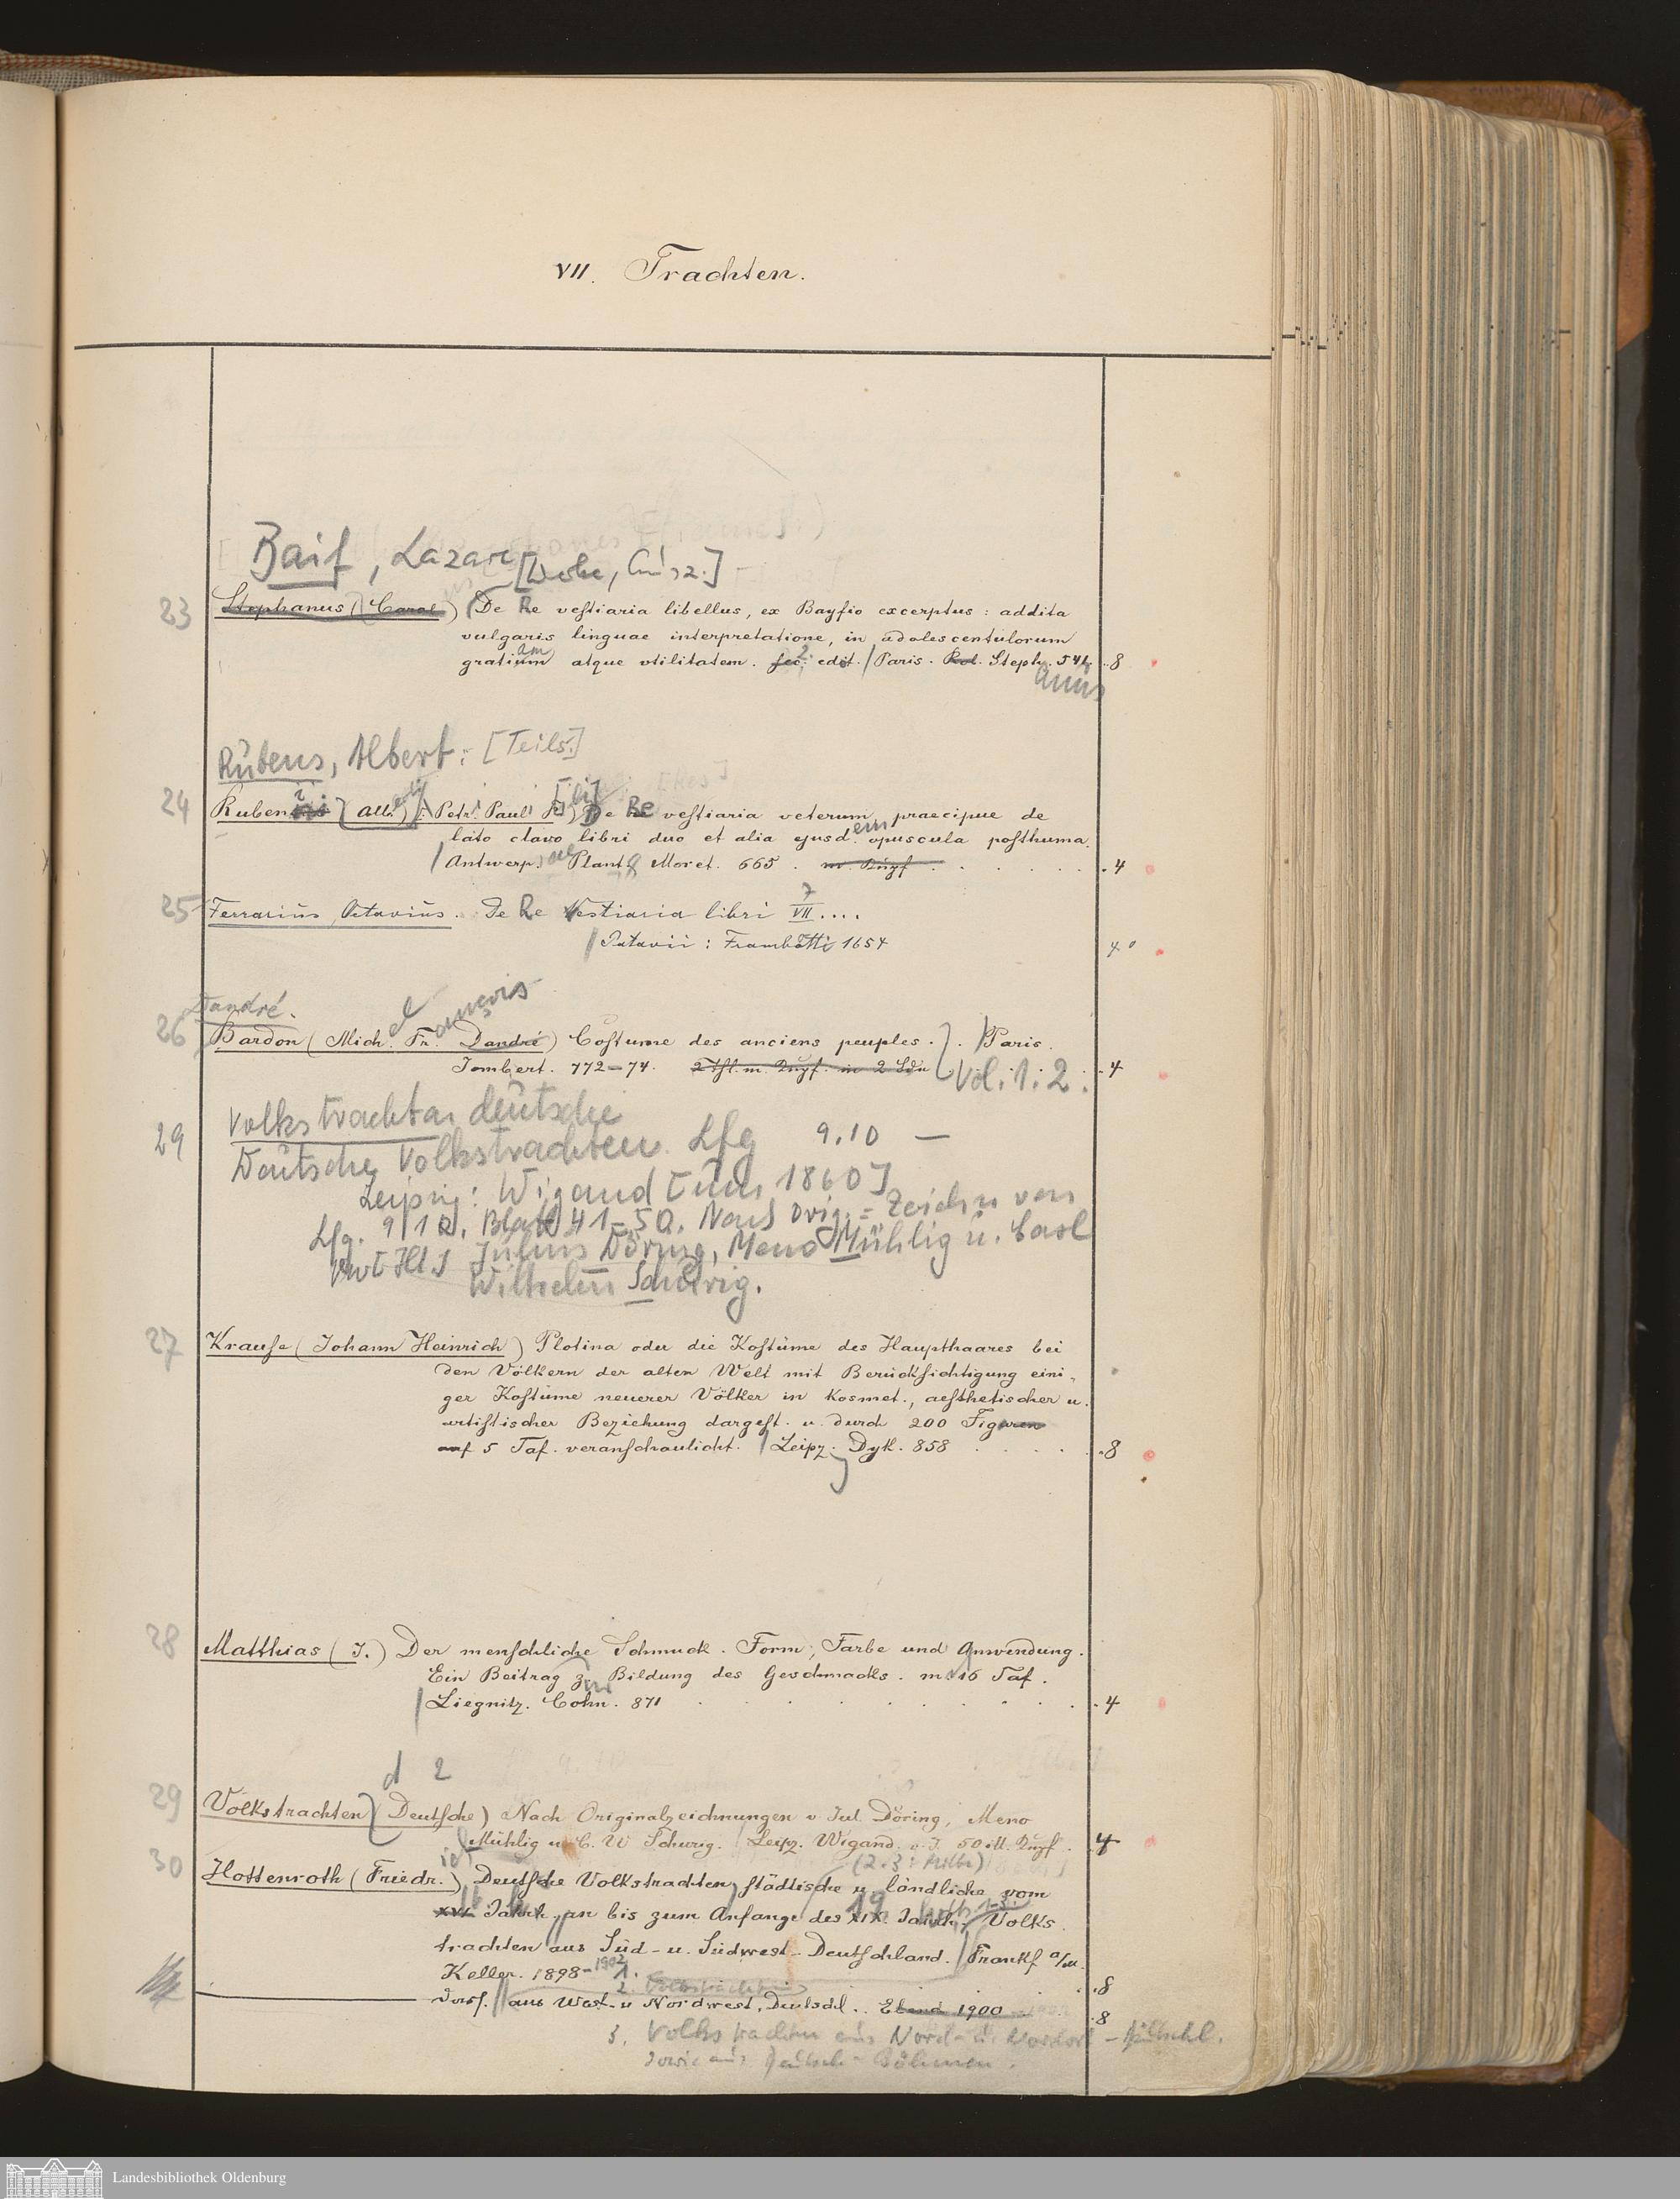 VII. Trachten.
Baif, Lazare
23 Stephanus (Carol) De Re vestiaria libellus, ex Bayfio excerptus: addita
vulgaris linguae interpretatione, in adolescentulorum
gratiam atque utilitatem. sec. 2. edit. / Paris. Rob. Steph. 541. 8
anus
Rubens, Albert: [Teils.]
24 Rubeni (Alb.) Petri Pauli F. De Re vestiaria veterum praecipue de
lato clavo libri duo et alia ejusdem opuscula posthuma.
Antwerp. Plant. Moret. 665. m. Kupf. . 4
25 Ferrarius, Octavius. De Re Vestiaria libri VII 7 ....
Patavii: Frambotti 1654 4°
Dandré.
26 Bardon (Mich. Fr. Dandré) Costume des anciens peuples. Paris.
el ançois
Jombert. 772-74. 2 Thl. m. Kupf. in 2 Bdn Vol. 1. 2. . 4
29 Volkstrachten deutsche
Deutsche Volkstrachten. Lfg 9.10 —
Leipzig: Wigand [um 1860]
Lfg. 9/10. Blatt 41-50. Nach Orig.=Zeichn von
Julius Döring, Meno Mühlig u. Carl
Wilhelm Schurig.
27 Krause (Johann Heinrich) Plotina oder die Kostüme des Haupthaares bei
den Völkern der alten Welt mit Berücksichtigung eini-
ger Kostüme neuerer Völker in kosmet., aesthetischer u.
artistischer Beziehung dargest. u. durch 200 Figuren
auf 5 Taf. veranschaulicht. / Leipz. Dyk. 858 . 8
28 Matthias (J.) Der menschliche Schmuck. Form, Farbe und Anwendung.
Ein Beitrag zur Bildung des Geschmacks. m. 16 Taf.
Liegnitz. Cohn. 871 . 4
d 2
29 Volkstrachten (Deutsche) Nach Originalzeichnungen v Jul. Döring, Meno
Mühlig u C. W Schurig. Leipz. Wigand. o. J. 50 ill. Kupf. 4
30 Hottenroth (Friedr.) Deutsche Volkstrachten, städtische u. ländliche vom
XVI. Jahrh. an bis zum Anfange des XIX. 19 Jahrh. Volks
trachten aus Süd- u. Südwest-Deutschland. / Frankf a/M.
Keller. 1898-1902 1. . 8
2.
Dass. aus West- u Nordwest, Deutschl.. Ebend 1900 . 8
3. Volkstrachten aus Nord- u. Nordost-Deutschl.
sowie aus Deutsch-Böhmen.
Landesbibliothek Oldenburg